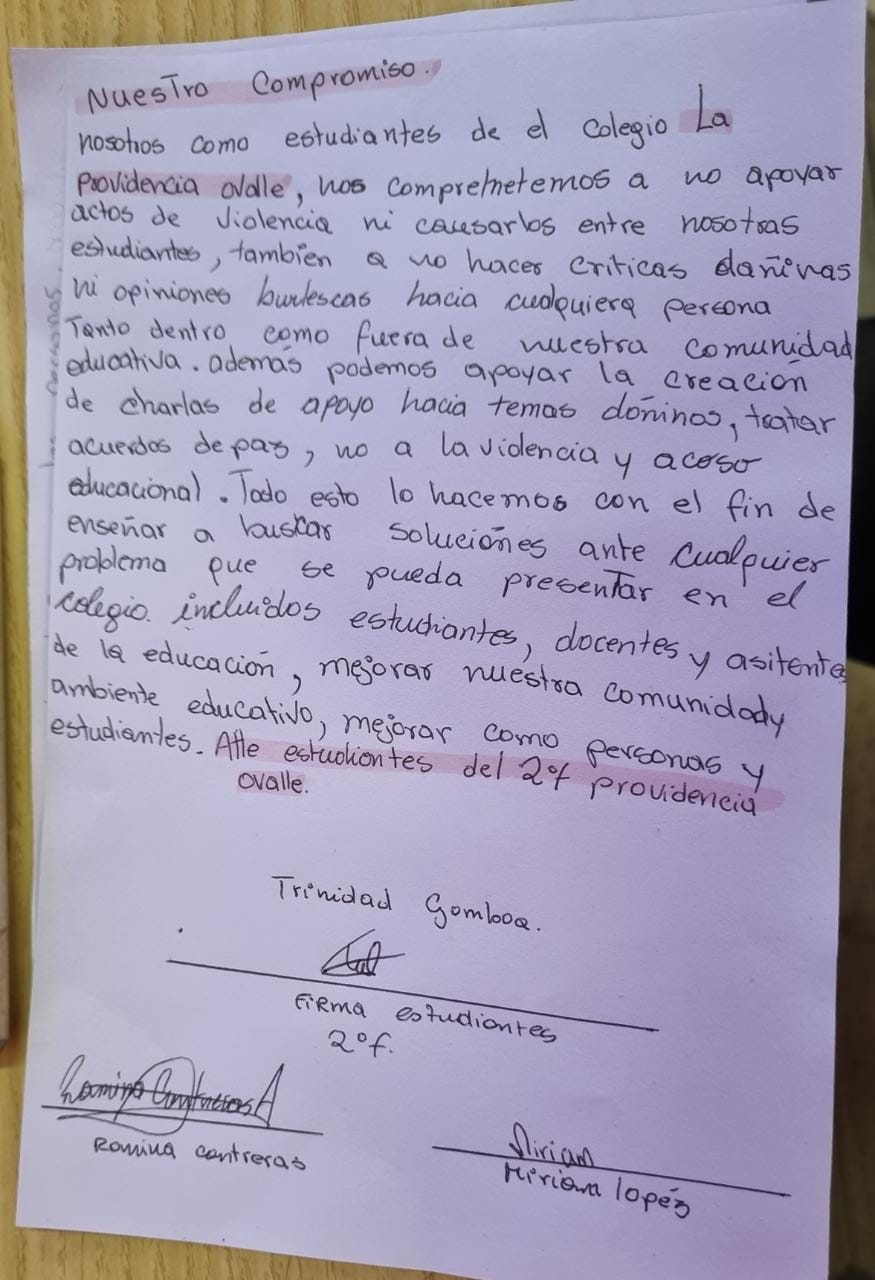 Nuestro Compromiso.
nosotros como estudiantes de el colegio La
providencia ovalle, nos compremetemos a no apoyar
actos de violencia ni causarlos entre nosotras
estudiantes, tambien a no hacer criticas dañinas
ni opiniones burlescas hacia cualquiera persona
Tanto dentro como fuera de nuestra comunidad
educativa. además podemos apoyar la creación
de charlas de apoyo hacia temas doninos, tratar
acuerdos de paz, no a la violencia y acoso
educacional. Todo esto lo hacemos con el fin de
enseñar a buscar soluciones ante cualquier
problema que se pueda presentar en el
colegio. incluidos estudiantes, docentes y asitentes
de la educación, mejorar nuestra comunidad y
ambiente educativo, mejorar como personas y
estudiantes. Atte estudiantes del 2°f providencia
ovalle.
Trinidad Gomboa.
Firma estudiantes
2°f.
Romina Contreras A
Romina contreras
Miriam
Miriam lopéz